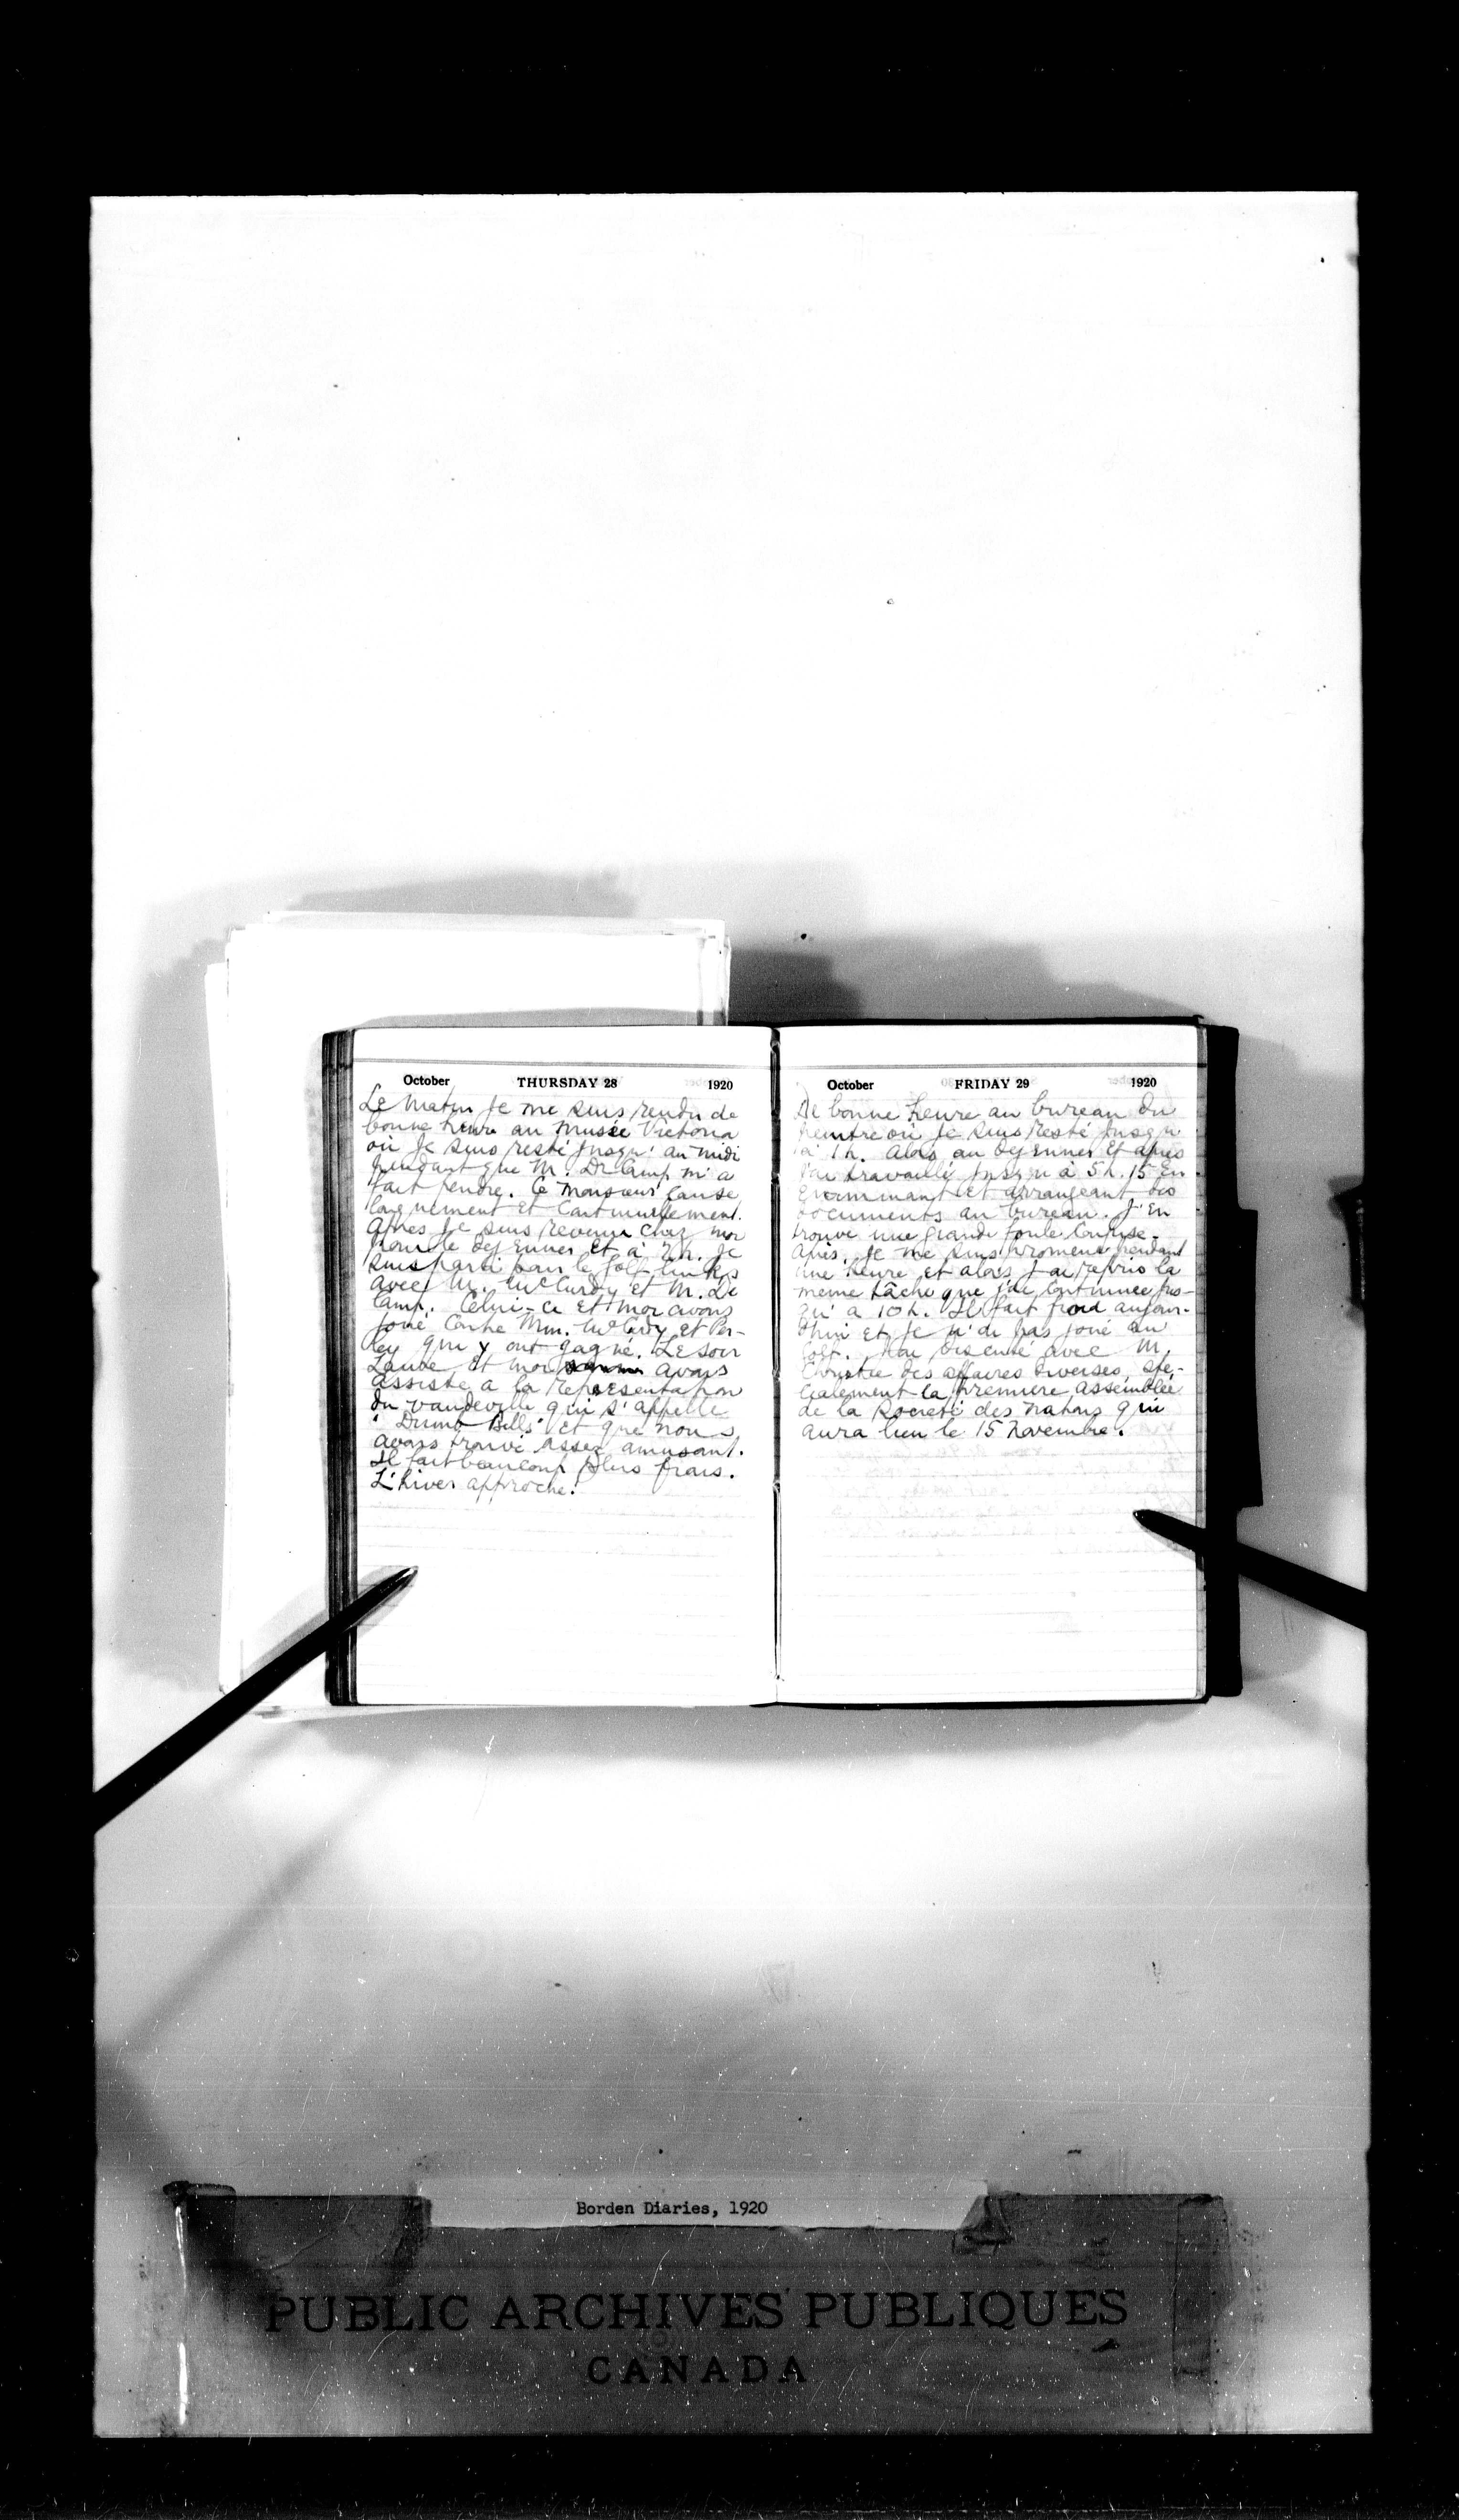 October THURSDAY 28 1920
Le matin je me suis rendu de
bonne heure au Musée Victoria
où je suis resté jusqu' au midi
pendant que M. De Camp m'a
fait peindre. Ce monsieur cause
longuement et continuellement.
Après je suis revenu chez moi
pour le dejeuner et à 2 h. je
suis parti pour le golf links
avec M. McCurdy et M. De
Camp. Celui-ci et moi avons
joué contre Mm. McCurdy et Per-
ley qui y ont gagné. Le soir
Laura et moi avons
assisté a la representation
du vaudeville qui s'appelle
"Dumb Bells" et que nous
avons trouvé assez amusant.
Il fait beaucoup plus frais.
L'hiver approche.
October FRIDAY 29 1920
De bonne heure au bureau du
peintre où je suis resté jusqu'
à 1 h. Alors au dejeuner et après
j'ai travaillé jusqu'à 5 h. 15 en
examinant et arrangeant des
documents au bureau. J'en
trouve une grande foule confuse.
Après, je me suis promené pendant
une heure et alors j'ai repris la
meme tâche que j'ai continuée jus-
qu' à 10 h. Il fait froid aujour-
d'hui et je n'ai pas joué au
golf. J'ai discuté avec M.
Christie des affaires diverses, spé-
cialement la premiere assemblée
de la Société des Nations qui
aura lieu le 15 Novembre.
Borden Diaries, 1920
PUBLIC ARCHIVES PUBLIQUES
CANADA